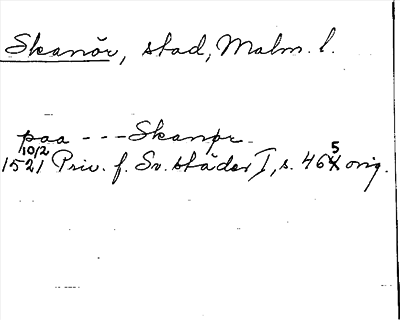 Skanör, stad, Malm. l.
paa --- Skanør
10/2
1521 Priv. f. Sv. städer I, s. 465 orig.